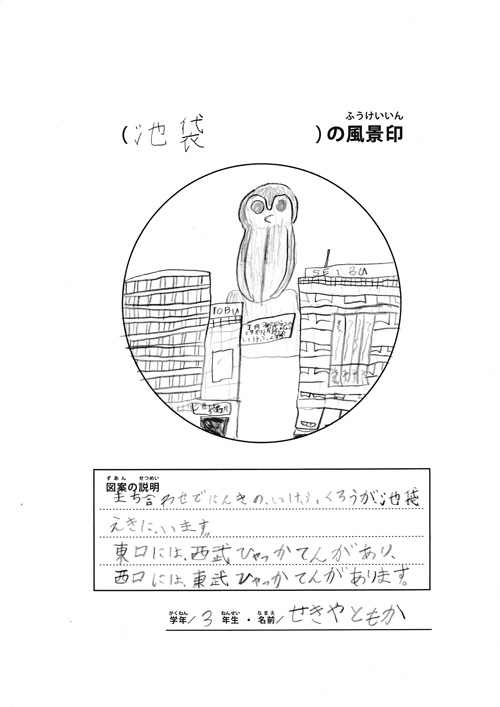 ふうけいいん
(池袋)の風景印
SEIBU
TOBU
ずあん せつめい
図案の説明
まち合わせでにんきの、いけふくろうが池袋
えきに、います。
東口には、西武ひゃっかてんがあり、
西口には、東武ひゃっかてんがあります。
がくねん ねんせい なまえ
学年/3年生・名前/せきやともか